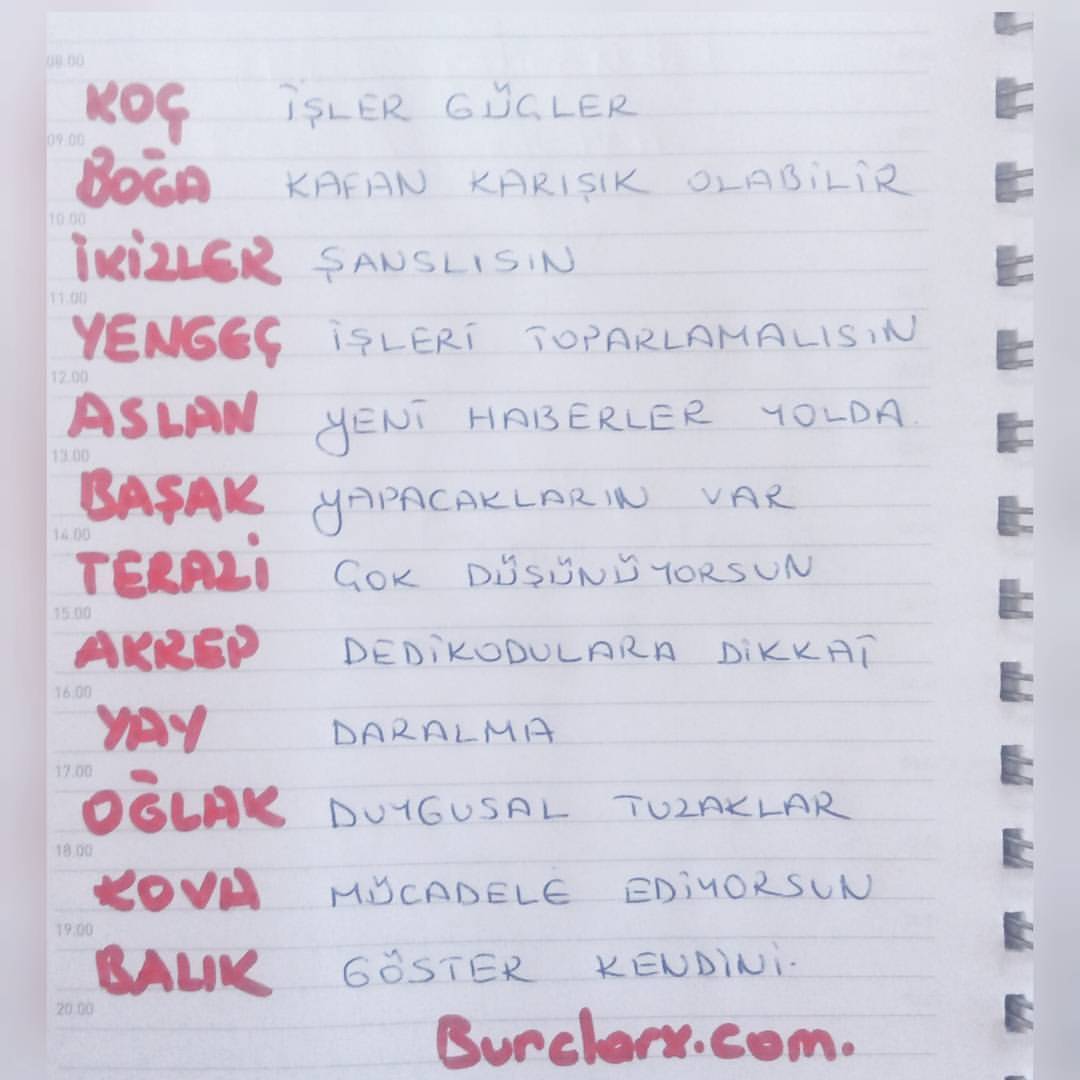 08.00
KOÇ İŞLER GÜÇLER
09.00
BOĞA KAFAN KARIŞIK OLABİLİR
10.00
İKİZLER ŞANSLISIN
11.00
YENGEÇ İŞLERİ TOPARLAMALISIN
12.00
ASLAN YENİ HABERLER YOLDA.
13.00
BAŞAK YAPACAKLARIN VAR
14.00
TERAZİ ÇOK DÜŞÜNÜYORSUN
15.00
AKREP DEDİKODULARA DİKKAT
16.00
YAY DARALMA
17.00
OĞLAK DUYGUSAL TUZAKLAR
18.00
KOVA MÜCADELE EDİYORSUN
19.00
BALIK GÖSTER KENDİNİ.
20.00
Burclarx.com.